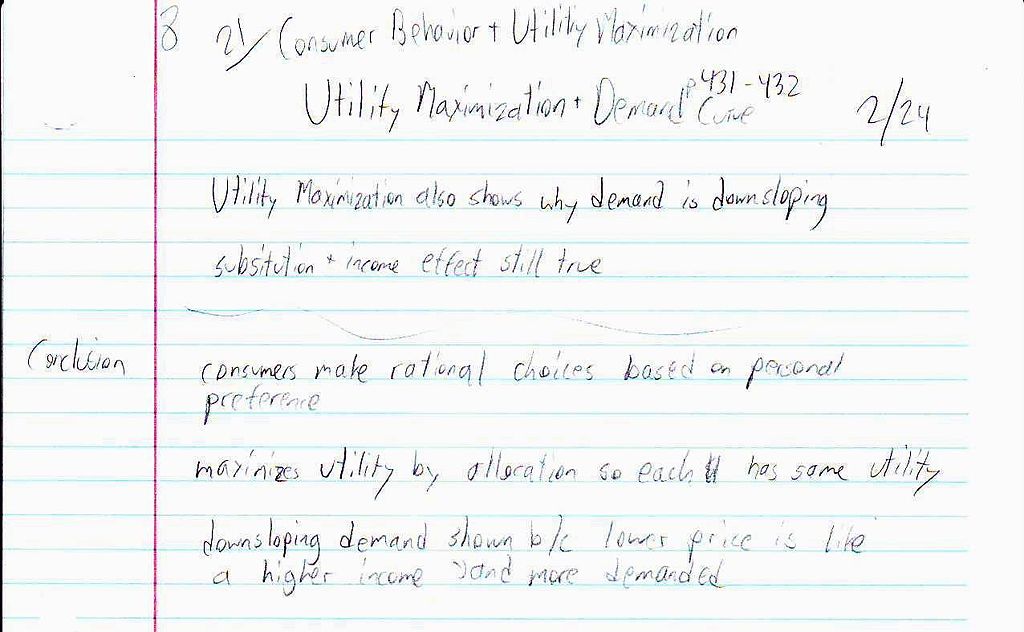 8 21/ Consumer Behavior + Utility Maximization
p431-432
Utility Maximization + Demand Curve 2/24
Utility Maximization also shows why demand is downsloping
subsitution + income effect still true
Conclusion consumers make rational choices based on personal
preference
maximizes utility by allocation so each has same utility
downsloping demand shown b/c lower price is like
a higher income and more demanded